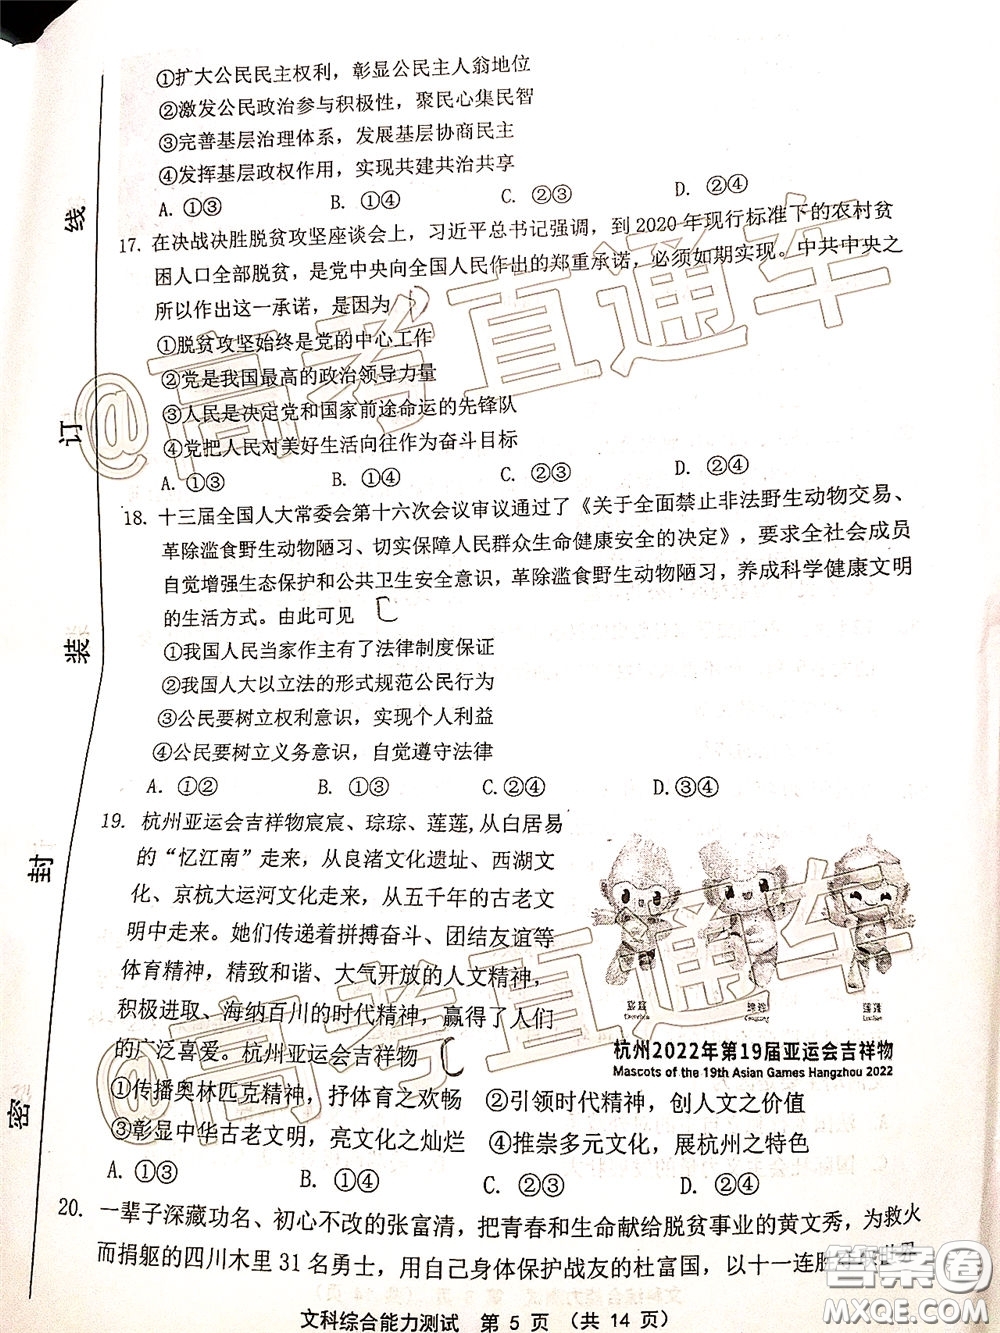 ①扩大公民民主权利，彰显公民主人翁地位
②激发公民政治参与积极性，聚民心集民智
③完善基层治理体系，发展基层协商民主
④发挥基层政权作用，实现共建共治共享
A. ①③ B. ①④ C. ②③ D. ②④
17. 在决战决胜脱贫攻坚座谈会上，习近平总书记强调，到2020年现行标准下的农村贫
困人口全部脱贫，是党中央向全国人民作出的郑重承诺，必须如期实现。中共中央之
所以作出这一承诺，是因为
①脱贫攻坚始终是党的中心工作
②党是我国最高的政治领导力量
③人民是决定党和国家前途命运的先锋队
④党把人民对美好生活向往作为奋斗目标
A. ①③ B. ①④ C. ②③ D. ②④
18. 十三届全国人大常委会第十六次会议审议通过了《关于全面禁止非法野生动物交易、
革除滥食野生动物陋习、切实保障人民群众生命健康安全的决定》，要求全社会成员
自觉增强生态保护和公共卫生安全意识，革除滥食野生动物陋习，养成科学健康文明
的生活方式。由此可见 C
①我国人民当家作主有了法律制度保证
②我国人大以立法的形式规范公民行为
③公民要树立权利意识，实现个人利益
④公民要树立义务意识，自觉遵守法律
A. ①② B. ①③ C. ②④ D. ③④
19. 杭州亚运会吉祥物宸宸、琮琮、莲莲,从白居易
的“忆江南”走来，从良渚文化遗址、西湖文
化、京杭大运河文化走来，从五千年的古老文
明中走来。她们传递着拼搏奋斗、团结友谊等
体育精神，精致和谐、大气开放的人文精神，
积极进取、海纳百川的时代精神，赢得了人们
的广泛喜爱。杭州亚运会吉祥物 C
杭州2022年第19届亚运会吉祥物
Mascots of the 19th Asian Games Hangzhou 2022
①传播奥林匹克精神，抒体育之欢畅 ②引领时代精神，创人文之价值
③彰显中华古老文明，亮文化之灿烂 ④推崇多元文化，展杭州之特色
A. ①③ B. ①④ C. ②③ D. ②④
20. 一辈子深藏功名、初心不改的张富清，把青春和生命献给脱贫事业的黄文秀，为救火
而捐躯的四川木里31名勇士，用自己身体保护战友的杜富国，以十一连胜
文科综合能力测试 第 5 页 （共 14 页）
线
订
装
封
密
@高考直通车
@高考直通车
答案卷
MXQE.COM